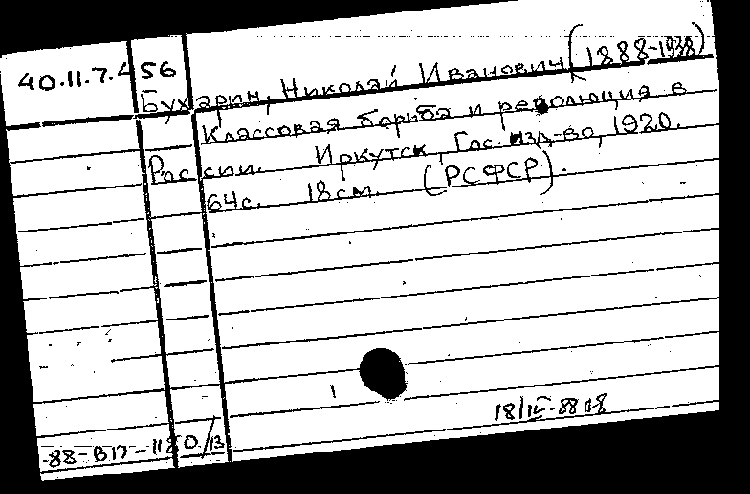 40.11.7.456
Бухарин, Николай Иванович (1888-1938)
Классовая борьба и революция в
России. Иркутск, Гос. изд-во, 1920.
64с. 18см. (РСФСР).
1
18/IV-88
-88-В17-1180/13